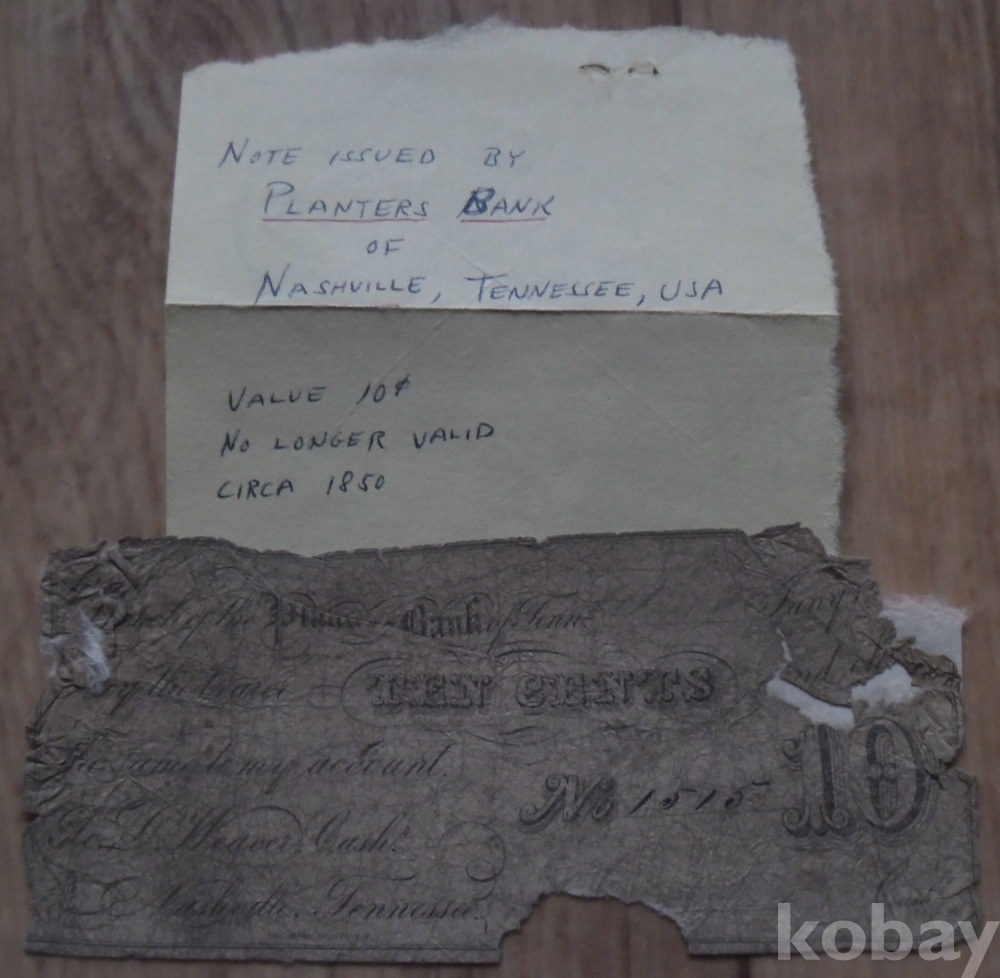 NOTE ISSUED BY
PLANTERS BANK
OF
NASHVILLE, TENNESSEE, USA
VALUE 10¢
NO LONGER VALID
CIRCA 1850
of the Bank of Tenn.
TEN CENTS
same to my account.
No 1515 10
Weaver, Cash.
Nashville, Tennessee.
kobay